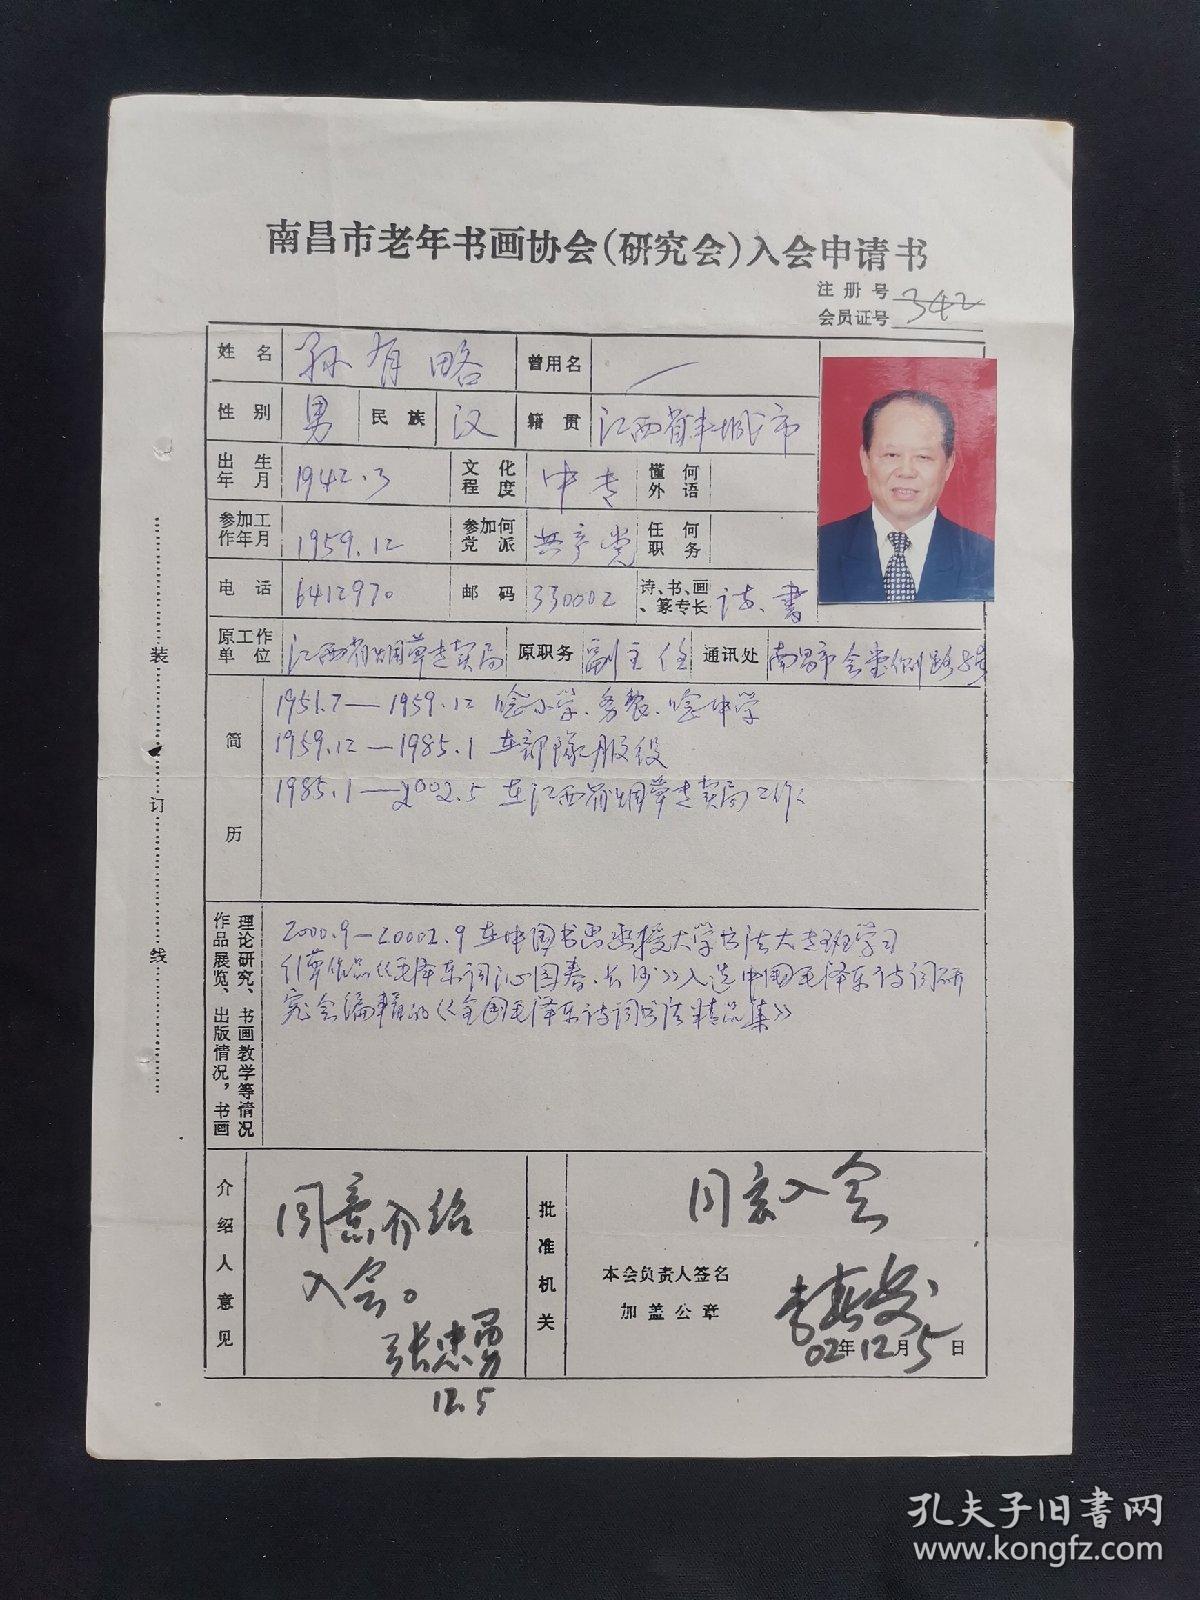 南昌市老年书画协会(研究会)入会申请书
注册号
会员证号 342
姓名 孙有略 曾用名 一
性别 男 民族 汉 籍贯 江西省丰城市
出生年月 1942.3 文化程度 中专 懂何外语
参加工作年月 1959.12 参加何党派 共产党 任何职务
电话 6412970 邮码 330002 诗、书、画、篆专长 诗、書
原工作单位 江西省烟草专卖局 原职务 副主任 通讯处 南昌市会堂侧路
简历
1951.7—1959.12 念小学、务农、念中学
1959.12—1985.1 在部隊服役
1985.1—2002.5 在江西省烟草专卖局工作
理论研究、书画教学等情况
作品展览、出版情况，书画
2000.9—20002.9 在中国书画函授大学书法大专班学习
作品《毛泽东词沁园春·长沙》入选中国毛泽东诗词研
究会编辑的《全国毛泽东诗词书法精品集》
介绍人意见
同意介绍
入会。
张忠勇
12.5
批准机关
同意入会
本会负责人签名
加盖公章
02年12月5日
装订线
孔夫子旧书网
www.kongfz.com